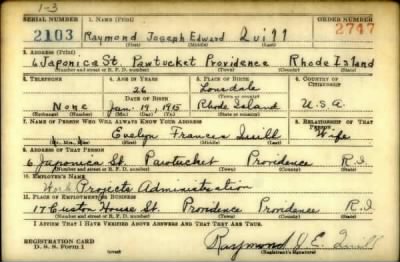 1-3
SERIAL NUMBER 1. NAME (Print) ORDER NUMBER
2103 Raymond Joseph Edward Quill 2747
(First) (Middle) (Last)
2. ADDRESS (Print)
6 Japonica St. Pawtucket Providence Rhode Island
(Number and street or R. F. D. number) (Town) (County) (State)
3. TELEPHONE 4. AGE IN YEARS 5. PLACE OF BIRTH 6. COUNTRY OF CITIZENSHIP
26 Lonsdale
DATE OF BIRTH
None Jan. 19, 1915 Rhode Island U.S.A.
(Exchange) (Number) (Mo.) (Day) (Yr.) (State or country)
7. NAME OF PERSON WHO WILL ALWAYS KNOW YOUR ADDRESS 8. RELATIONSHIP OF THAT PERSON
Evelyn Francis Quill Wife
(Mr., Mrs., Miss) (First) (Middle) (Last)
9. ADDRESS OF THAT PERSON
6 Japonica St. Pawtucket Providence R.I.
(Number and street or R. F. D. number) (Town) (County) (State)
10. EMPLOYER'S NAME
Work Projects Administration
11. PLACE OF EMPLOYMENT OR BUSINESS
17 Custom House St. Providence Providence R.I.
(Number and street or R. F. D. number) (Town) (County) (State)
I AFFIRM THAT I HAVE VERIFIED ABOVE ANSWERS AND THAT THEY ARE TRUE.
REGISTRATION CARD
D. S. S. Form 1 Raymond J. E. Quill
(Registrant's signature)